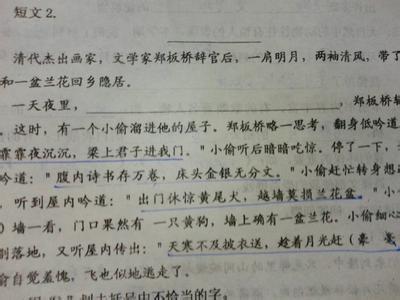 短文2.
清代杰出画家，文学家郑板桥辞官后，一肩明月，两袖清风，带了
和一盆兰花回乡隐居。
一天夜里，，郑板桥辗
。这时，有一个小偷溜进他的屋子。郑板桥略一思考，翻身低吟道
霏霏夜沉沉，梁上君子进我门。"小偷听后暗暗吃惊。停了一下，
吟道："腹内诗书存万卷，床头金银无分文。"小偷赶忙转身想
，听到屋内吟道："出门休惊黄尾犬，越墙莫损兰花盆。"
）墙一看，门口果然有一只黄狗，墙上确有一盆兰花。小偷细心
刚落地，又听屋内传出："天寒不及披衣送，趁着月光赶（豪
偷自觉羞愧，飞也似地逃走了。
划去括号中不恰当的字。